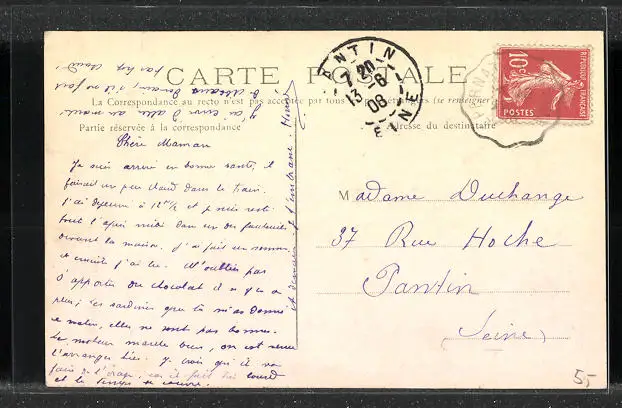 CARTE POSTALE
La Correspondance au recto n'est pas acceptée par tous (se renseigner
Partie réservée à la correspondance
Adresse du destinataire
PANTIN
7 20
13 -6
08
SEINE
10c
POSTES
REPUBLIQUE FRANÇAISE
Chère Maman
Je suis arrivé en bonne santé, il
faisait un peu chaud dans le train.
J'ai déjeuné à 12h½ et je suis resté
tout l'après midi dans un des fauteuils
devant la maison. J'ai fait un somme
et ensuite j'ai lu. N'oublies pas
d'apporter du chocolat il n'y en a
plus; les sardines que tu m'as donné
ce matin, elles ne sont pas bonnes.
Le moteur marche bien, on est venu
l'arranger hier. Je crois qu'il va
faire de l'orage, car il fait très lourd
et le temps se couvre.
J'ai envie d'aller au
pas trop chaud.
Je t'embrasse
Madame Duchange
37 Rue Hoche
Pantin
(Seine)
5,-